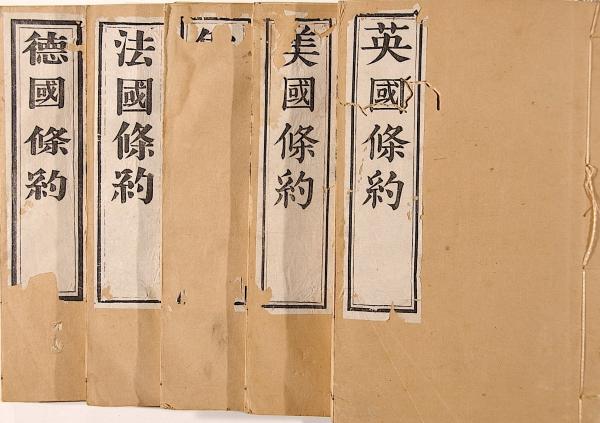 英國條約
美國條約
法國條約
德國條約